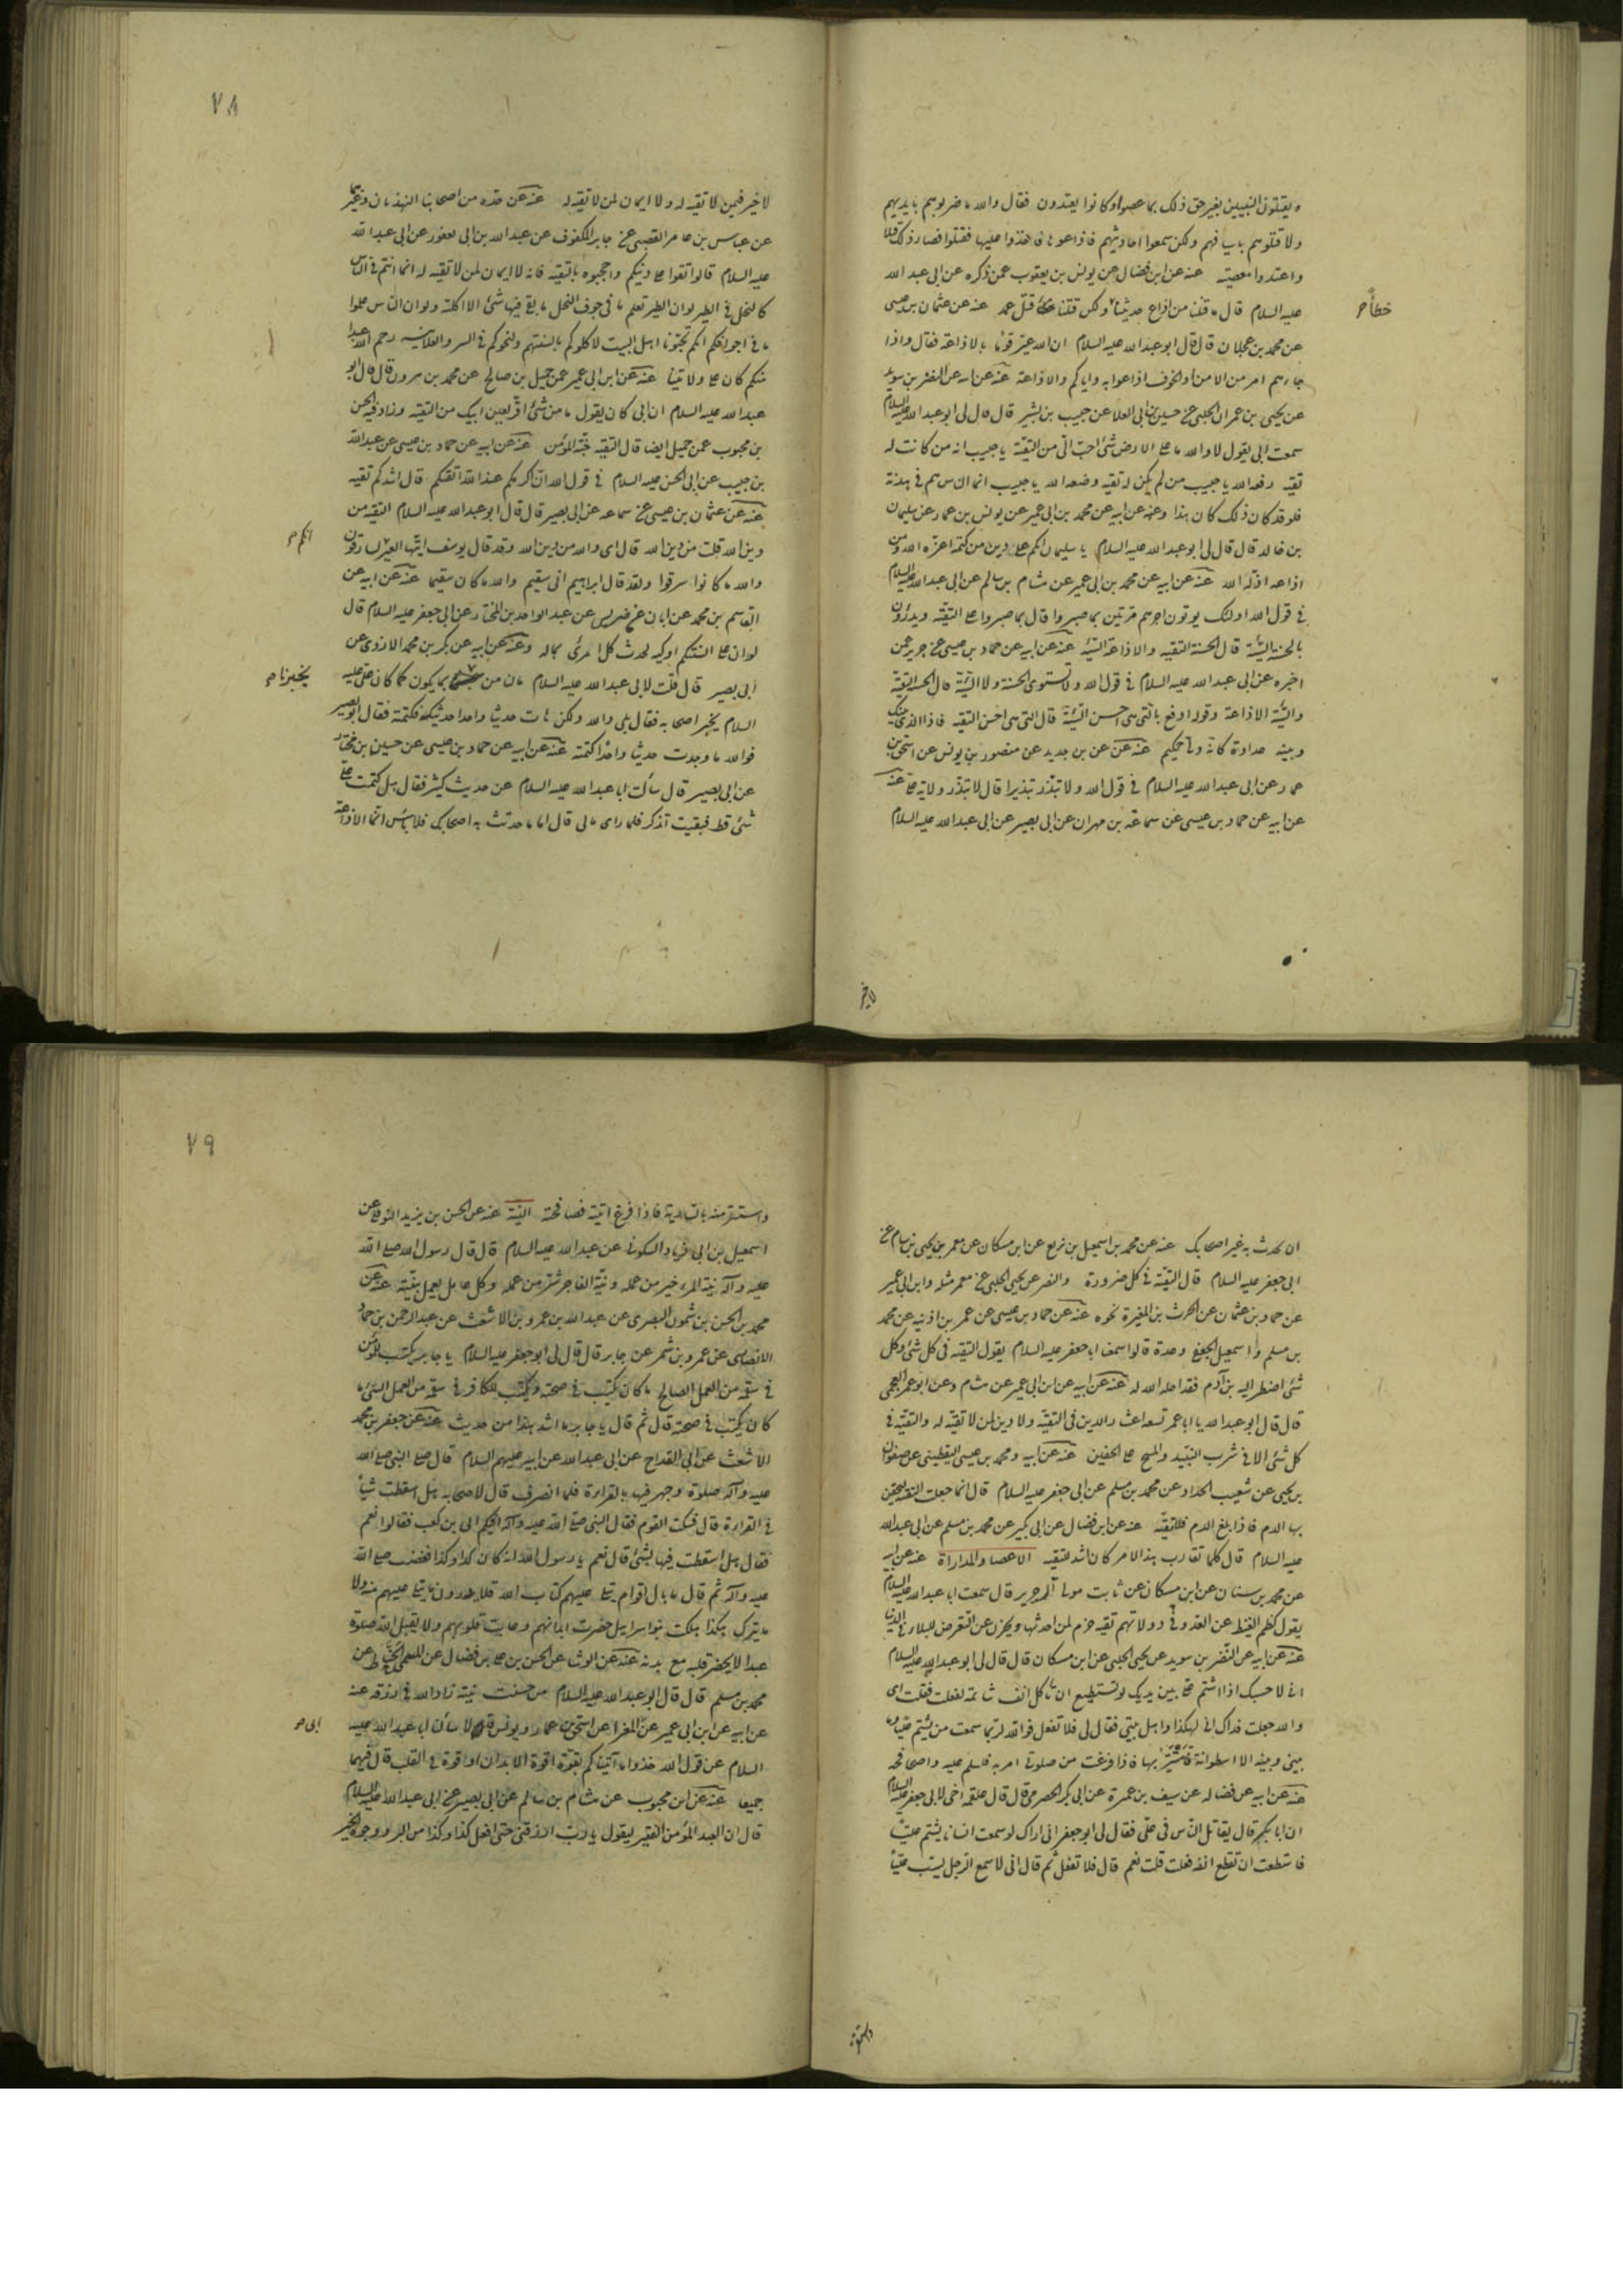 ويقتلون النبيين بغير حق ذلك بما عصوا وكانوا يعتدون فقال والله ما ضربوهم بايديهم
ولا قتلوهم باسيافهم ولكن سمعوا احاديثهم فاذاعوها فاخذوا عليها فقتلوا فصار ذلك قتلا
واعتدوا معصية عنه عن ابن فضال عن يونس بن يعقوب عمن ذكره عن ابى عبد الله
عليه السلام قال ما قتلنا من اذاع حديثنا ولكن قتلنا قتل عمد عنه عن عثمان بن عيسى
خطأ
عن محمد بن عجلان قال قال ابو عبد الله عليه السلام ان الله عير قوما بالاذاعة فقال واذا
جاءهم امر من الامن او الخوف اذاعوا به واياكم والاذاعة عنه عن ابيه عن النضر بن سويد
عن يحيى بن عمران الحلبى عن حسين بن ابى العلا عن حبيب بن بشير قال قال لى ابو عبد الله عليه السلام
سمعت ابى يقول لا والله ما على الارض شئ احب الى من التقية يا حبيب انه من كانت له
تقية رفعه الله يا حبيب من لم يكن له تقيه وضعه الله يا حبيب انما الناس هم فى هدنة
فلو قد كان ذلك كان هذا وعنه عن ابيه عن محمد بن ابى عمير عن يونس بن عمار عن سليمان
بن خالد قال قال لى ابو عبد الله عليه السلام يا سليمان انكم على دين من كتمه اعزه الله ومن
اذاعه اذله الله عنه عن ابيه عن محمد بن ابى عمير عن هشام بن سالم عن ابى عبد الله عليه السلام
فى قول الله اولئك يوتون اجرهم مرتين بما صبروا قال بما صبروا على التقية ويدرؤن
بالحسنة السيئة قال الحسنة التقيه والاذاعة السيئة عنه عن ابيه عن حماد بن عيسى عن حريز عمن
اخبره عن ابى عبد الله عليه السلام فى قول الله ولا تستوى الحسنة ولا السيئة قال الحسنة التقية
والسيئة الاذاعة وقوله ادفع بالتى هى احسن السيئة قال التى هى احسن التقيه فاذا الذى بينك
وبينه عداوة كانه ولى حميم عنه عن على بن حديد عن منصور بن يونس عن اسحق بن
عمار عن ابى عبد الله عليه السلام فى قول الله ولا تبذر تبذيرا قال لا تبذر ولاية على عنه
عن ابيه عن حماد بن عيسى عن سماعة بن مهران عن ابى بصير عن ابى عبد الله عليه السلام
لا خير
٧٨
لا خير فيمن لا تقيه له ولا ايمان لمن لا تقيه له عنه عن عدة من اصحابنا النهديان وغيرهما
عن عباس بن عامر القصبى عن جابر المكفوف عن عبد الله بن ابى يعفور عن ابى عبد الله
عليه السلام قال اتقوا على دينكم واحجبوه بالتقيه فانه لا ايمان لمن لا تقيه له انما انتم فى الناس
كالنحل فى الطير لو ان الطير تعلم ما فى جوف النحل ما بقى فيها شئ الا اكلته ولو ان الناس علموا
ما فى اجوافكم انكم تحبونا اهل البيت لاكلوكم بالسنتهم ولنحوكم فى السر والعلانيه رحم الله عبدا
منكم كان على ولايتنا عنه عن ابن ابى عمير عن جميل بن صالح عن محمد بن مروان قال قال ابو
عبد الله عليه السلام ان ابى كان يقول ما من شئ اقر لعين ابيك من التقية وزاد فيه الحسن
بن محبوب عن جميل ايضا قال التقيه جنة المؤمن عنه عن ابيه عن حماد بن عيسى عن عبد الله
بن حبيب عن ابى الحسن عليه السلام فى قول الله ان اكرمكم عند الله اتقيكم قال اشدكم تقيه
عنه عن عثمان بن عيسى عن سماعه عن ابى بصير قال قال ابو عبد الله عليه السلام التقيه من
دين الله قلت من دين الله قال اى والله من دين الله وقد قال يوسف ايتها العير لسارقون
انكم
والله ما كانوا سرقوا ولقد قال ابراهيم انى سقيم والله ما كان سقيما عنه عن ابيه عن
القاسم بن محمد عن ابان عن ضريس عن عبد الواحد بن المختار عن ابى جعفر عليه السلام قال
لو ان على السنتكم اوكيه لحدث كل امرئ بما له وعنه عن ابيه عن بكر بن محمد الازدى عن
ابى بصير قال قلت لابى عبد الله عليه السلام ما لنا من بما يكون كما كان على عليه
يخبرنا
السلام يخبر اصحابه فقال بلى والله ولكن هات حديثا واحدا حدثتكه فكتمته فقال ابو بصير
فوالله ما وجدت حديثا واحدا كتمته عنه عن ابيه عن حماد بن عيسى عن حسين بن مختار
عن ابى بصير قال سألت ابا عبد الله عليه السلام عن حديث كثير فقال هل كتمت على
شئ قط فبقيت اتذكر فلما راى ما بى قال اما ما حدثت به اصحابك فلا باس انما الاذاعة
ان تحدث به غير اصحابك عنه عن محمد بن اسمعيل بن بزيع عن ابن مسكان عن معمر بن يحيى بن سام عن
ابى جعفر عليه السلام قال التقية فى كل ضرورة والنضر عن يحيى الحلبى عن معمر مثله وابن ابى عمير
عن حماد بن عثمان عن الحرث بن المغيرة نحوه عنه عن حماد بن عيسى عن عمر بن اذينه عن محمد
بن مسلم واسمعيل الجعفى وعدة قالوا سمعنا ابا جعفر عليه السلام يقول التقيه فى كل شئ وكل
شئ اضطر اليه بن آدم فقد احله الله له عنه عن ابيه عن ابن ابى عمير عن هشام وعن ابو عمر العجمى
قال قال ابو عبد الله يا ابا عمر تسعه اعشار الدين فى التقيه ولا دين لمن لا تقيه له والتقية فى
كل شئ الا فى شرب النبيذ والمسح على الخفين عنه عن ابيه ومحمد بن عيسى اليقطينى عن صفوان
بن يحيى عن شعيب الحداد عن محمد بن مسلم عن ابى جعفر عليه السلام قال انما جعلت التقية ليحقن
بها الدم فاذا بلغ الدم فلا تقيه عنه عن ابن فضال عن ابن بكير عن محمد بن مسلم عن ابى عبد الله
عليه السلام قال كلما تقارب هذا الامر كان اشد للتقيه الاغضا والمداراة عنه عن ابيه
عن محمد بن سنان عن ابن مسكان عن ثابت مولى آل حرير قال سمعت ابا عبد الله عليه السلام
يقول كظم الغيظ عن العدو فى دولاتهم تقيه حزم لمن اخذ بها وتحرز عن التعرض للبلاء فى الدنيا
عنه عن ابيه عن النضر بن سويد عن يحيى الحلبى عن ابن مسكان قال قال لى ابو عبد الله عليه السلام
انى لا حسبك اذا شتم على بين يديك لو تستطيع ان تأكل انف شاتمه لفعلت فقلت اى
والله جعلت فداك انى لهكذا واهل بيتى فقال لى فلا تفعل فوالله لربما سمعت من يشتم عليا وما
بينى وبينه الا اسطوانة فاستتر بها فاذا فرغت من صلوتى امر به فاسلم عليه واصافحه
عنه عن ابيه عن فضاله عن سيف بن عميرة عن ابى بكر الحضرمى قال قال علقمه اخى لابى جعفر عليه السلام
ان ابا بكر قال يقاتل الناس فى على فقال لى ابو جعفر انى اراك لو سمعت انسانا يشتم عليا
فاستطعت ان تقطع انفه فعلت قلت نعم قال فلا تفعل ثم قال انى لاسمع الرجل يسب عليا
واستتر
٧٩
واستتر منه بالسارية فاذا فرغ اتيته فصافحته النية عنه عن الحسن بن يزيد النوفلى عن
اسمعيل بن ابى زياد السكونى عن عبد الله عليه السلام قال قال رسول الله صلى الله
عليه وآله نية المرء خير من عمله ونية الفاجر شر من عمله وكل عامل يعمل بنيته عنه عن
محمد بن الحسن بن شمون البصرى عن عبد الله بن عمرو بن الاشعث عن عبد الرحمن بن حماد
الانصارى عن عمرو بن شمر عن جابر قال قال لى ابو جعفر عليه السلام يا جابر يكتب للمؤمن
فى سقمه من العمل الصالح ما كان يكتب فى صحته ويكتب للكافر فى سقمه من العمل السئ ما
كان يكتب فى صحته قال ثم قال يا جابر ما اشد هذا من حديث عنه عن جعفر بن محمد
الاشعث عن ابن القداح عن ابى عبد الله عن ابيه عليهم السلام قال صلى النبى صلى الله
عليه وآله صلوة وجهر فيها بالقراءة فلما انصرف قال لاصحابه هل اسقطت شيأ
فى القراءة قال فسكت القوم فقال النبى صلى الله عليه وآله افيكم ابى بن كعب فقالوا نعم
فقال هل اسقطت فيها بشئ قال نعم يا رسول الله انه كان كذا وكذا فغضب صلى الله
عليه وآله ثم قال ما بال اقوام يتلى عليهم كتاب الله فلا يدرون ما يتلى عليهم منه ولا
ما يترك هكذا هلكت بنو اسرايل حضرت ابدانهم وغابت قلوبهم ولا يقبل الله صلوة
عبد لا يحضر قلبه مع بدنه عنه عن الوشا عن الحسن بن على بن فضال عن المثنى الحناط عن
محمد بن مسلم قال قال ابو عبد الله عليه السلام من حسنت نيته زاد الله فى رزقه عنه
عن ابيه عن ابن ابى عمير عن المغرا عن اسحق بن عمار ويونس قالا سألنا ابا عبد الله عليه
ابى
السلام عن قول الله خذوا ما آتيناكم بقوة اقوة الابدان او قوة فى القلب قال فيهما
جميعا عنه عن ابن محبوب عن هشام بن سالم عن ابى بصير عن ابى عبد الله عليه السلام
قال ان العبد المؤمن الفقير ليقول يا رب ارزقنى حتى افعل كذا وكذا من البر ووجوه الخير